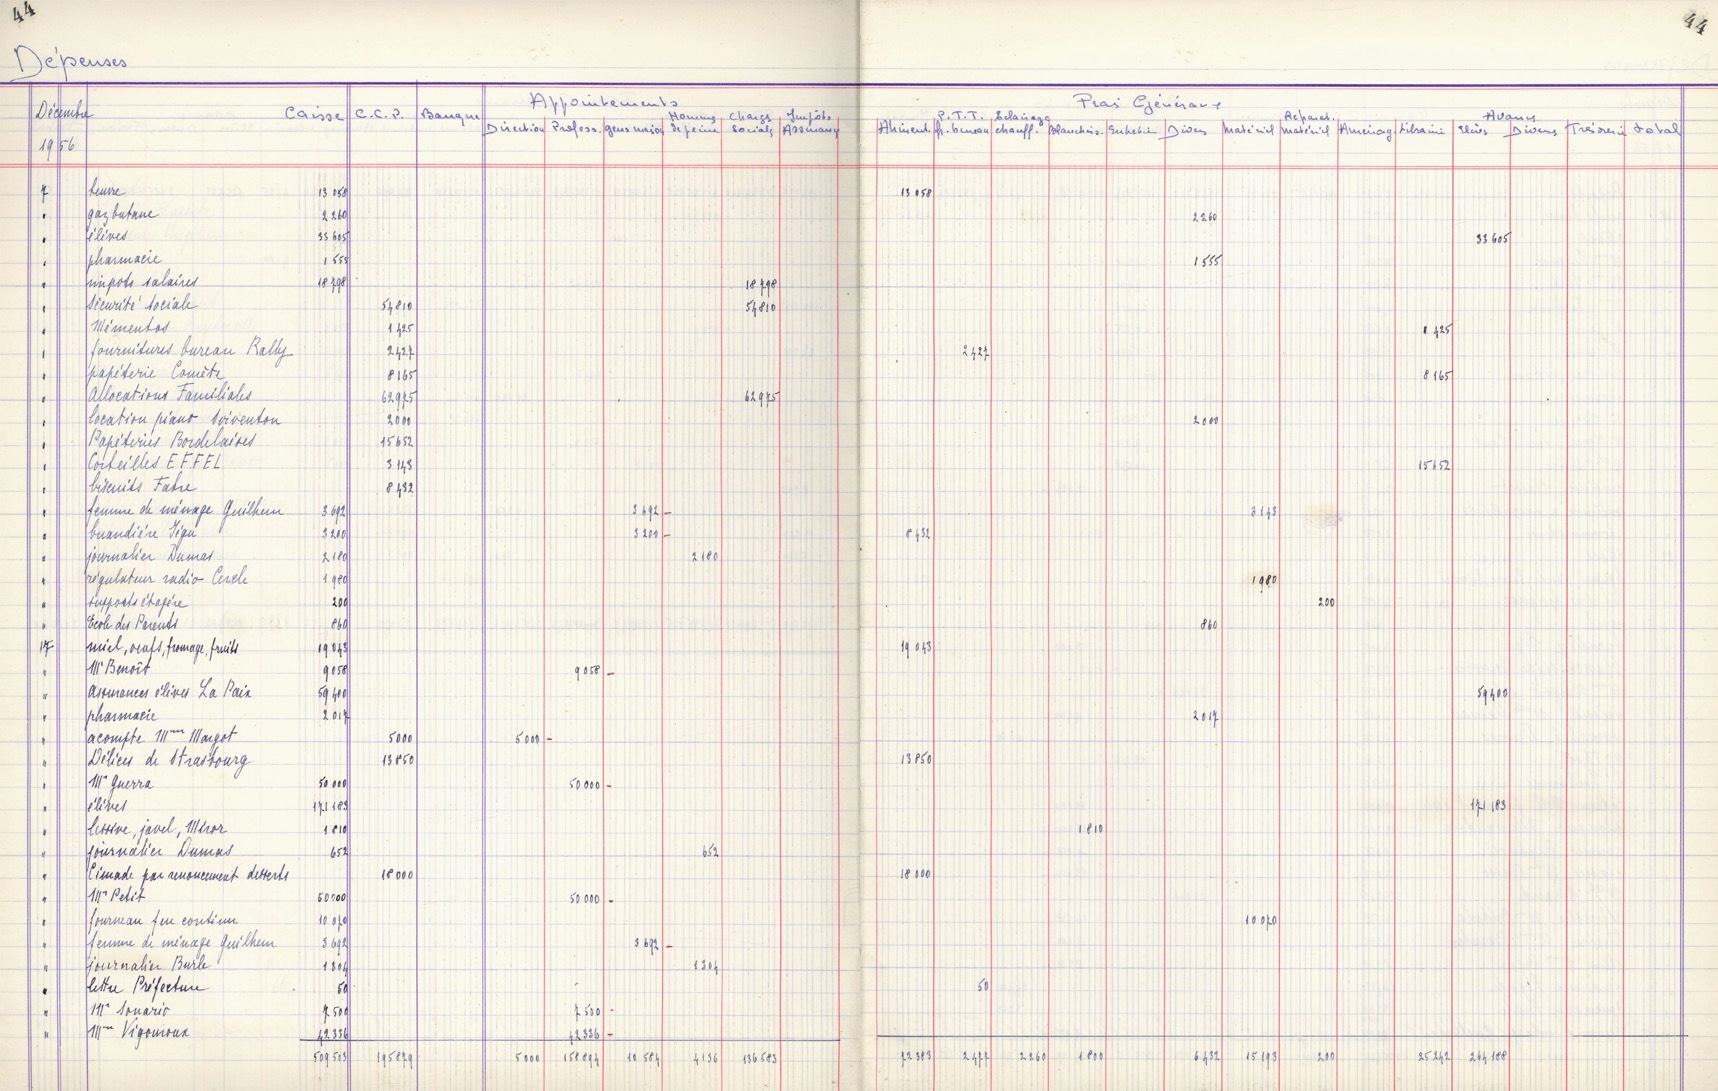 44 44
Dépenses
Appointements Frais Généraux
Décembre Caisse C.C.P. Banque Direction Profess. gens maison Homme de peine Charges Sociales Impôts Assurances Aliment. P.T.T. fr. bureau Eclairage chauff. blanchiss. Entretien Divers matériel Réparat. matériel Aménag. Librairie Avances Elèves Divers Trésorerie total
1956
7 beurre 13 058 13 058
" gaz butane 2 260 2260
" élèves 33 605 33 605
" pharmacie 1 555 1 555
" impots salaires 18 798 18 798
" Sécurité sociale 54 810 54 810
" Mémentos 1 425 1 425
" fournitures bureau Rally 2 427 2 427
" papéterie Comète 8 165 8 165
" Allocations Familiales 62 975 62 975
" location piano 2000 2000
" Papéteries Bordelaises 15 652
" Corbeilles EFFEL 3 143 15 652
" biscuits Fabre 8 432
" femme de ménage Guilhem 3 692 3 692 3 143
" buandière 3 200 3 200 8 432
" journalier Dumas 2 180 2 180
" régulateur radio 1 980 1 980
" supports étagère 200 200
" Ecole des Parents 860 860
17 miel, oeufs, fromage, fruits 19 043 19 043
" Mr Benoît 9 058 9 058
" assurances élèves La Paix 59 400 59 400
" pharmacie 2 017 2 017
" acompte Mme Margot 5000 5 000
" Délices de Strasbourg 13 850 13 850
" Mr Guerra 50 000 50 000
" élèves 171 183 171 183
" lessive, javel, Miror 1 810 1 810
" journalier Dumas 652 652
" Cimade par renoncement desserts 18 000 18 000
" Mr Petit 50 000 50 000
" fourneau feu continu 10 070 10 070
" femme de ménage Guilhem 3 692 3 692
" journalier Burle 1 304 1 304
" lettre Préfecture 50 50
" Mr 7 500 7 500
" Mme Vigouroux 42 336 42 336
509 503 195 879 5 000 158 894 10 584 4 136 136 583 72 383 2 477 2 260 1 800 6 432 15 193 200 25 242 264 188